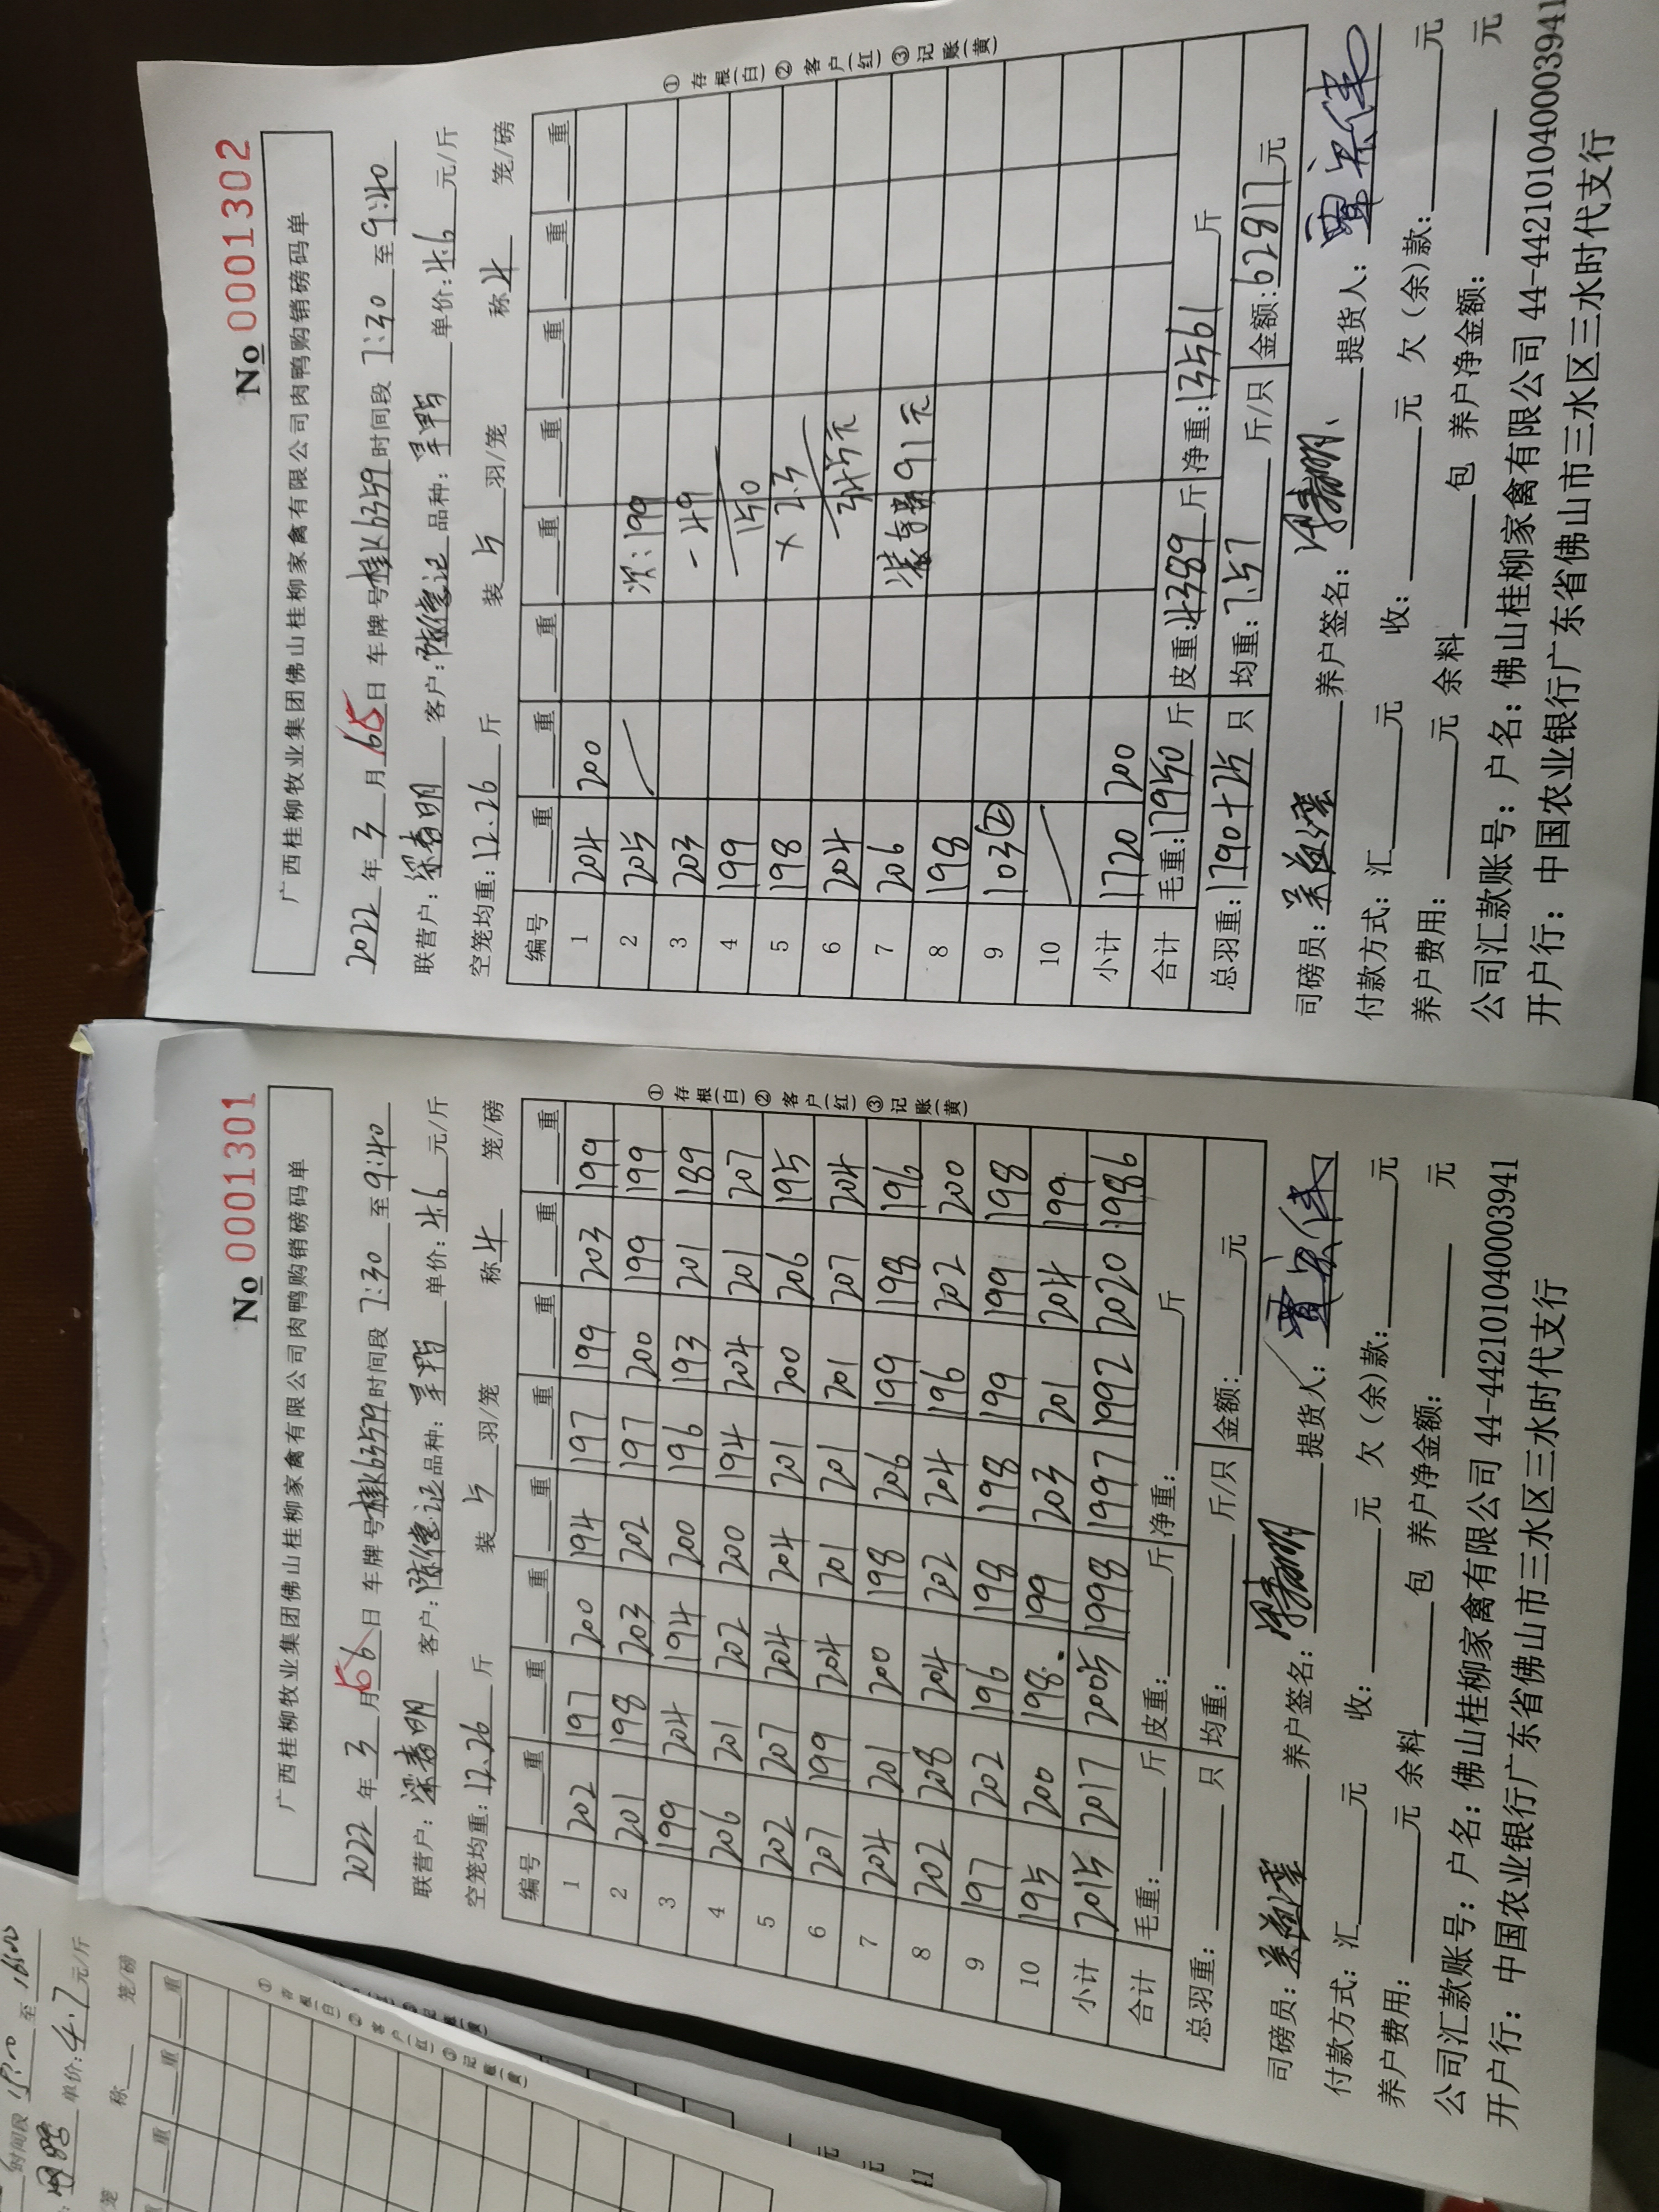 No 0001301
广西桂柳牧业集团佛山桂柳家禽有限公司肉鸭购销磅码单
2022 年 3 月 6 5 日 车牌号 时间段 7:30 至 9:40
联营户: 客户: 陈德记 品种: 单价: 4.6 元/斤
空笼均重: 12.26 斤 装 5 羽/笼 称 4 笼/磅
编号 重 重 重 重 重 重 重 重
1 202 197 200 194 197 199 203 199
2 201 198 203 202 197 200 199 199
3 199 204 194 200 196 193 201 189
4 206 201 202 200 194 204 201 207
5 202 207 204 204 201 200 206 195
6 207 199 204 201 201 201 207 204
7 204 201 200 198 206 199 198 196
8 202 208 204 202 204 196 202 200
9 197 202 196 198 198 199 199 198
10 195 200 198 199 203 201 204 199
小计 2015 2017 2005 1998 1997 1992 2020 1986
合计 毛重: 斤 皮重: 斤 净重: 斤
总羽重: 只 均重: 斤/只 金额: 元
司磅员: 养户签名: 提货人:
付款方式: 汇 元 收: 元 欠(余)款: 元
养户费用: 元 余料 包 养户净金额: 元
公司汇款账号: 户名: 佛山桂柳家禽有限公司 44-442101040003941
开户行: 中国农业银行广东省佛山市三水区三水时代支行
①存根(白)②客户(红)③记账(黄)
No 0001302
广西桂柳牧业集团佛山桂柳家禽有限公司肉鸭购销磅码单
2022 年 3 月 6 5 日 车牌号 时间段 7:30 至 9:40
联营户: 客户: 陈德记 品种: 单价: 4.6 元/斤
空笼均重: 12.26 斤 装 5 羽/笼 称 4 笼/磅
编号 重 重 重 重 重 重 重 重
1 204 200
2 205 次:199
3 203 -49
4 199 150
5 198 × 2.3
6 204 345元
7 206 91元
8 198
9 103②
10
小计 1720 200
合计 毛重: 17950 斤 皮重: 4389 斤 净重: 13561 斤
总羽重: 1790+25 只 均重: 7.57 斤/只 金额: 62817 元
司磅员: 养户签名: 提货人:
付款方式: 汇 元 收: 元 欠(余)款: 元
养户费用: 元 余料 包 养户净金额: 元
公司汇款账号: 户名: 佛山桂柳家禽有限公司 44-442101040003941
开户行: 中国农业银行广东省佛山市三水区三水时代支行
①存根(白)②客户(红)③记账(黄)
时间段 至 16:00
单价: 4.7 元/斤
称 笼/磅
重 重
①存根(白)②客户(红)③记账(黄)
元
元
41